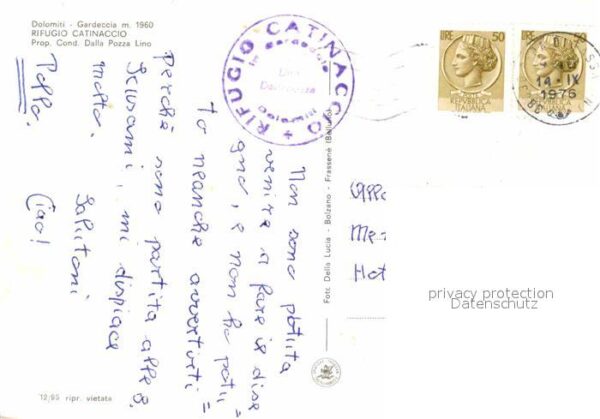 Dolomiti - Gardeccia m. 1960
RIFUGIO CATINACCIO
Prop. Cond. Dalla Pozza Lino
RIFUGIO CATINACCIO
Gardeccia
Dolomiti
LIRE 50
REPUBBLICA ITALIANA
LIRE 50
REPUBBLICA ITALIANA
14-IX
1976
Non sono potuta
venire a fare il dise
gno, e non ho potu=
to neanche avvertirti=
perchè sono partita alle 8.
Scusami, mi dispiace
molto. Salutoni
Ciao!
Foto Della Lucia - Bolzano - Frassenè (Belluno)
Hot
privacy protection
Datenschutz
12/95 ripr. vietata